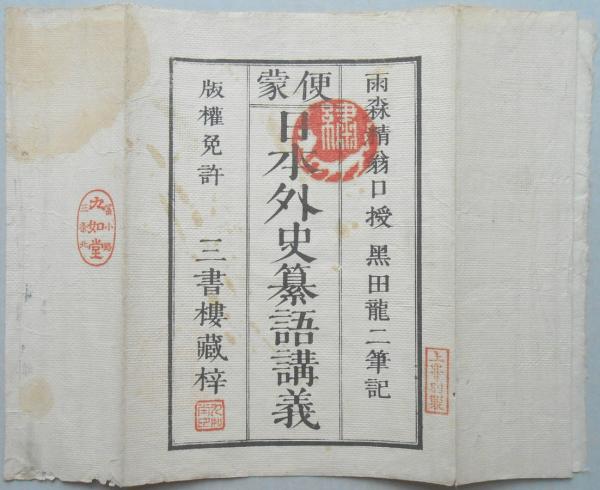 雨森精翁口授 黑田龍二筆記
便蒙
日本外史纂語講義
版權免許 三書樓藏梓
九如堂